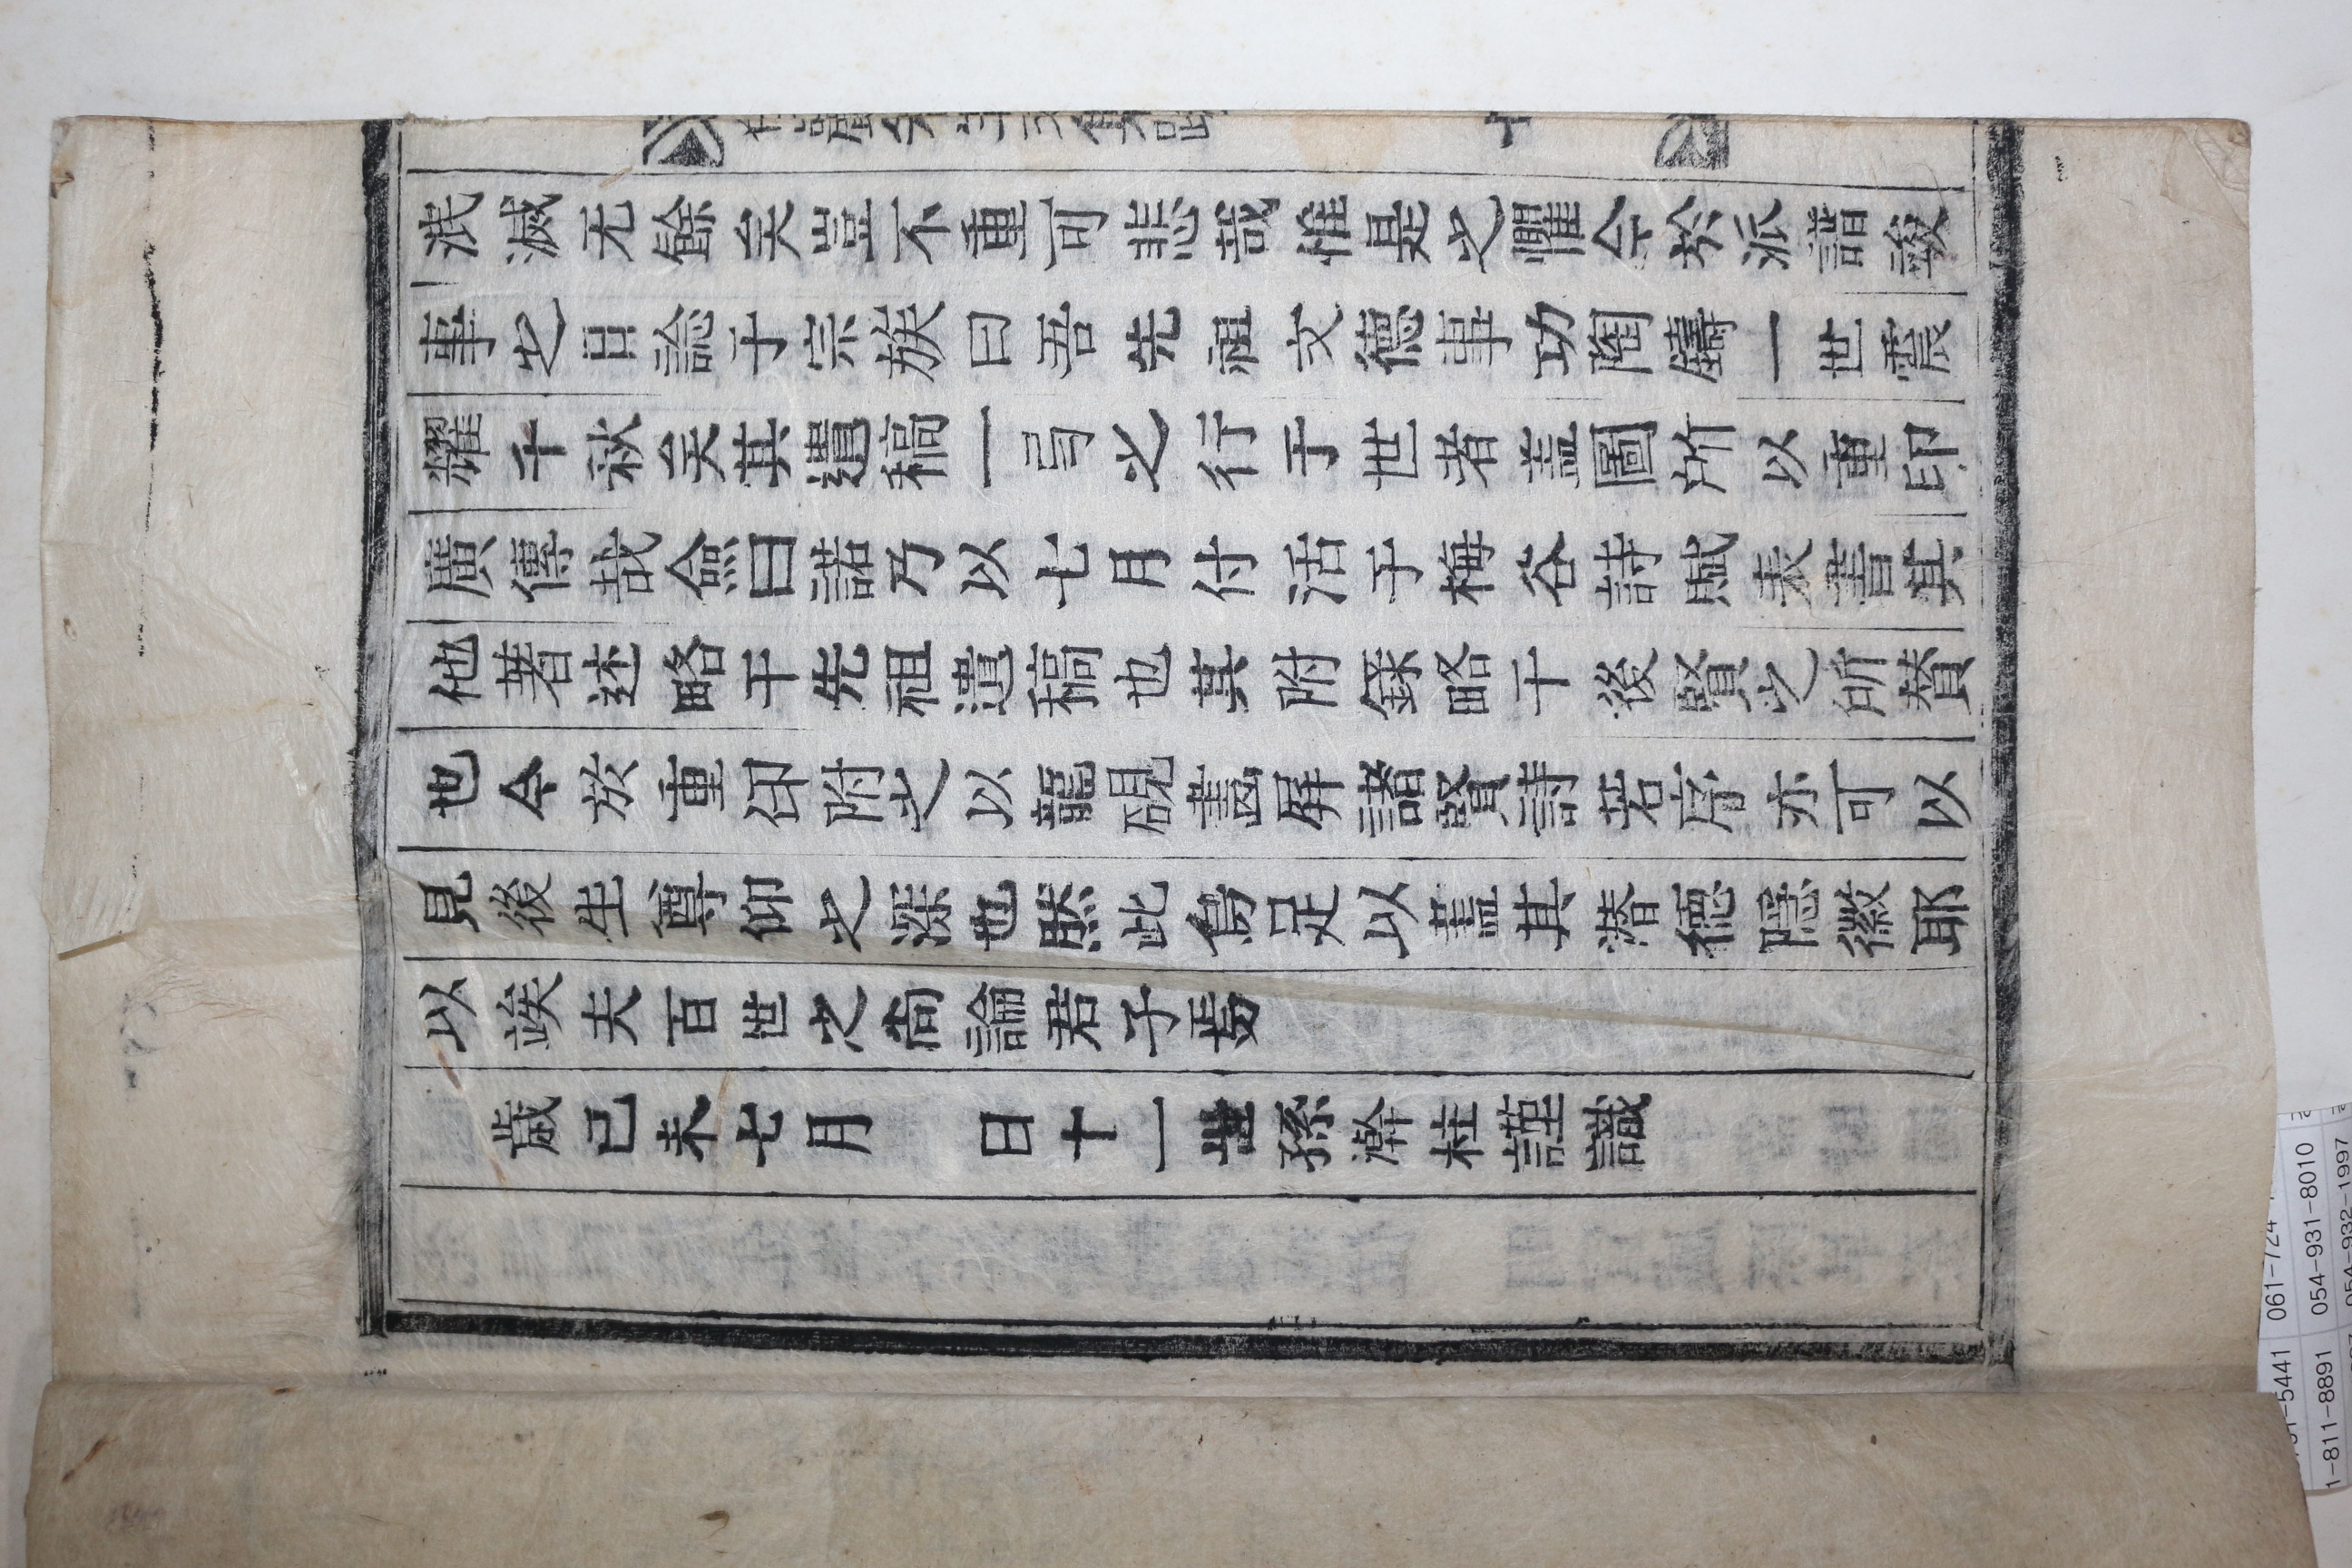 先生文集
泯滅无餘矣豈不重可悲哉惟是之懼今於派譜竣
事之日諗于宗族曰吾先祖文德事功陶鑄一世震
耀千秋矣其遺稿一弓之行于世者盖圖所以重印
廣傳哉僉曰諾乃以七月付活于梅谷詩賦表書其
他著述略干先祖遺稿也其附錄略干後賢之所贊
也今於重印附之以龍硯畵屛諸賢詩若序亦可以
見後生尊仰之深也然此烏足以盖其潜德隠徽耶
以竢夫百世之尚論君子焉
歲己未七月 日十一世孫澣柱謹識
5441 061-724
1-811-8891 054-931-8010
054-932-1997